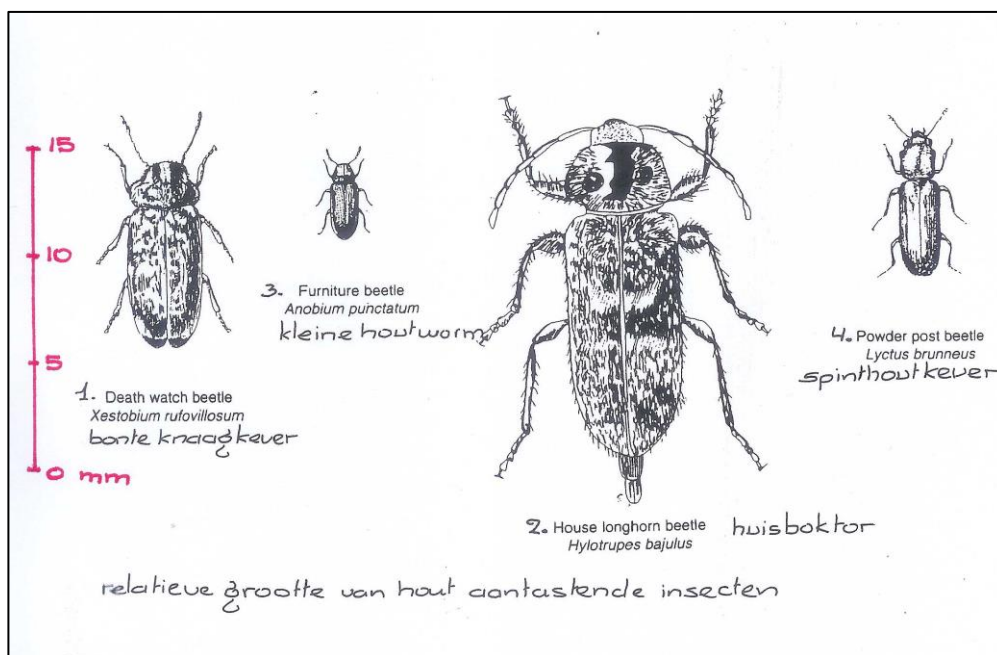 15
10
5
0 mm
1. Death watch beetle
Xestobium rufovillosum
bonte knaagkever
3. Furniture beetle
Anobium punctatum
kleine houtworm
2. House longhorn beetle huisboktor
Hylotrupes bajulus
4. Powder post beetle
Lyctus brunneus
spinthoutkever
relatieve grootte van hout aantastende insecten